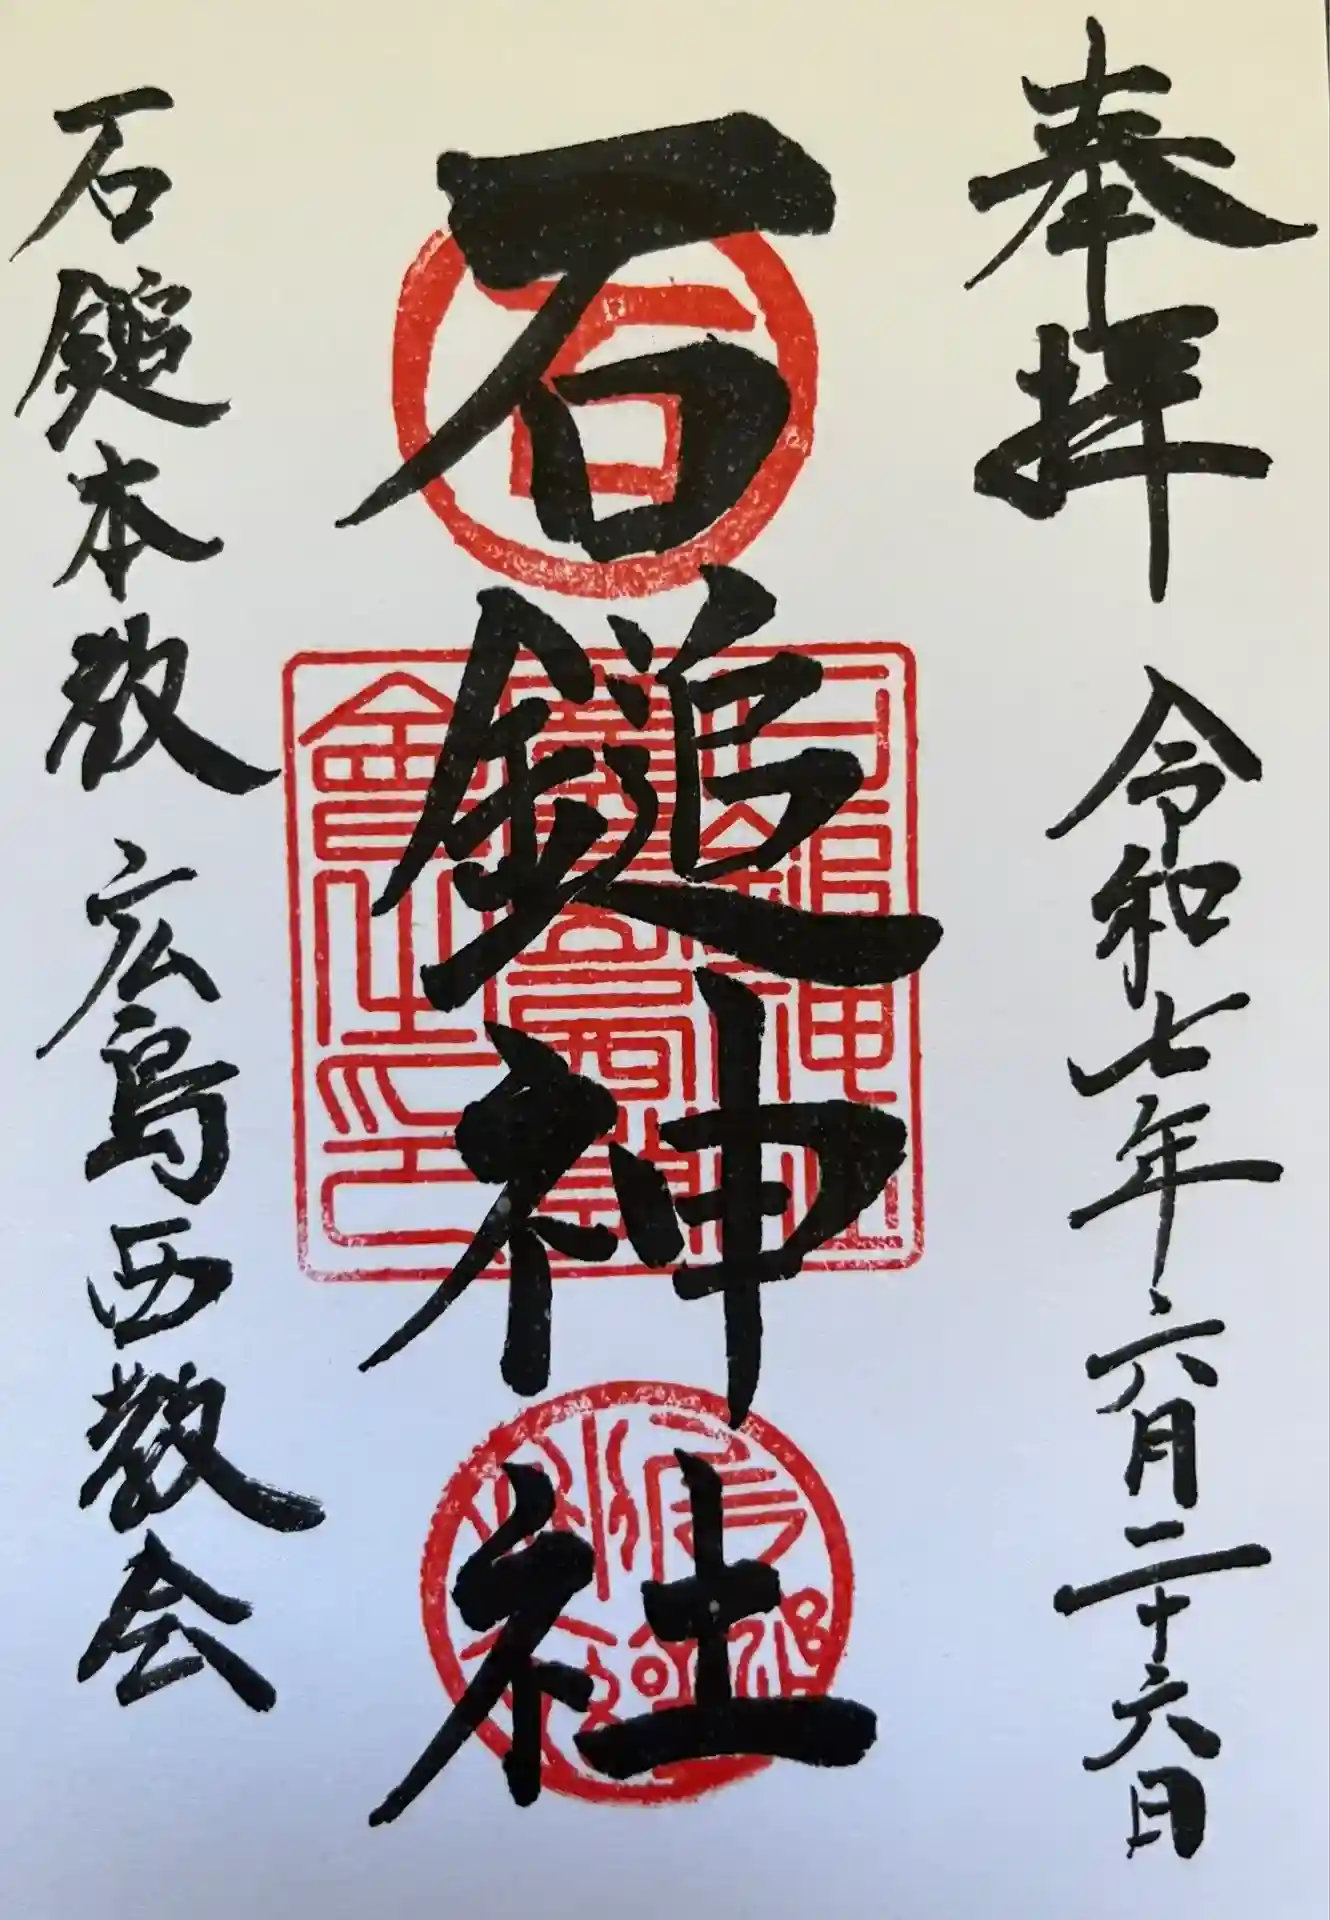 奉拝 令和七年六月二十六日
石鎚神社
石鎚本教 広島西教会
石